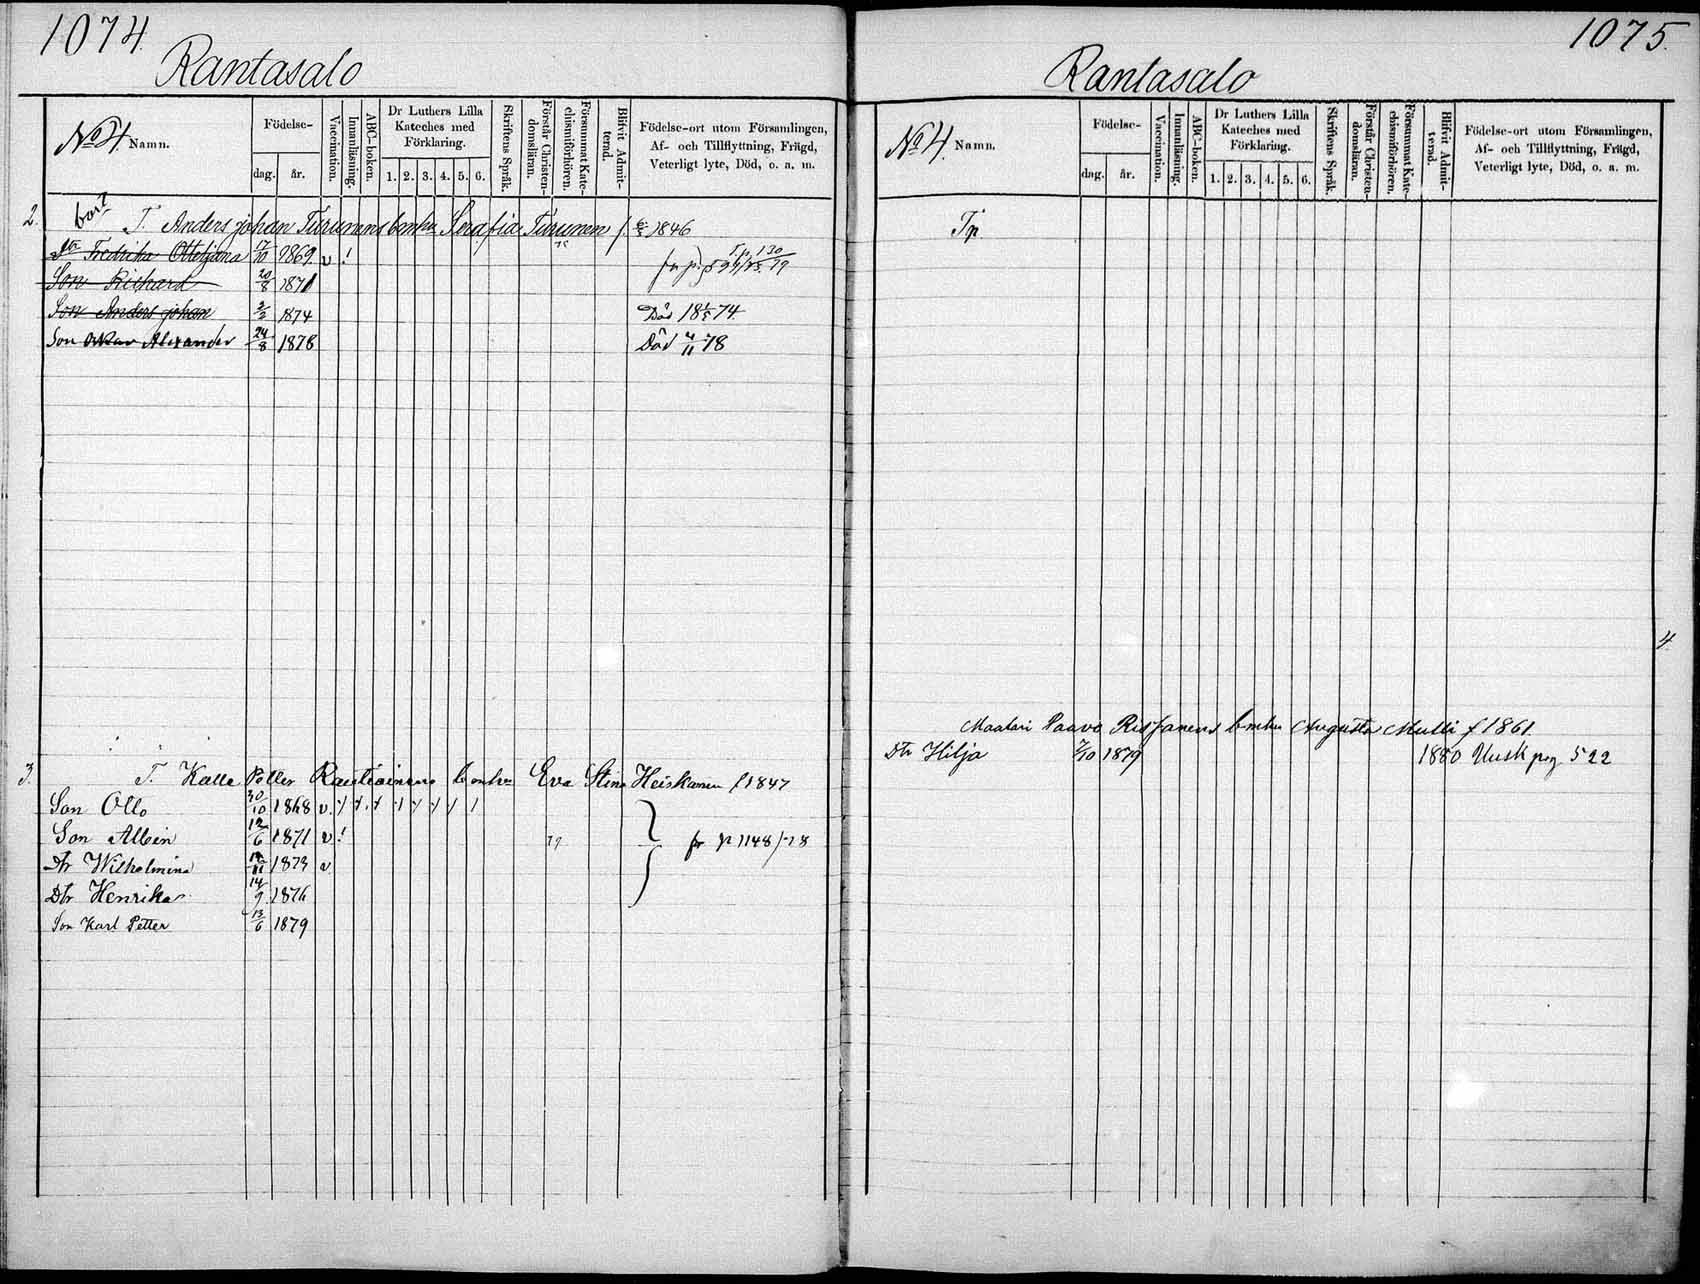 1074.
Rantasalo
No 4 Namn.
Födelse-
dag. år.
Vaccination.
Innanläsning.
ABC-boken.
Dr Luthers Lilla Kateches med Förklaring.
1. 2. 3. 4. 5. 6.
Skriftens Språk.
Förstår Christendomsläran.
Försummat Katechismiförhören.
Blifvit Admitterad.
Födelse-ort utom Församlingen,
Af- och Tillflyttning, Frägd,
Veterligt lyte, Död, o. a. m.
2. bort T. Anders Johan Turunens Serafia Turunen f. 1846
Dtr Fredrika 17/10 1869. v !
Son Rikhard 20/8 1871
Son Anders Johan 2/2 1874 Död 18 1/5 74.
Son Oskar Alexander 24/8 1878 Död 78
3. T. Kalle Petter Rautiainens Eva Stina Heiskanen f 1847
Son Ollo 30/10 1868 v.
Son Albin 12/6 1871 v ! fr p 1148/78
Dtr Wilhelmina 1873 v
Dtr Henrika 14/9 1876
Son Karl Petter 13/6 1879
1075.
Rantasalo
No 4. Namn.
Födelse-
dag. år.
Vaccination.
Innanläsning.
ABC-boken.
Dr Luthers Lilla Kateches med Förklaring.
1. 2. 3. 4. 5. 6.
Skriftens Språk.
Förstår Christendomsläran.
Försummat Katechismiförhören.
Blifvit Admitterad.
Födelse-ort utom Församlingen,
Af- och Tillflyttning, Frägd,
Veterligt lyte, Död, o. a. m.
Tp.
4
Paavo Augusta f 1861
Dtr Hilja 1879 1880 pag 522